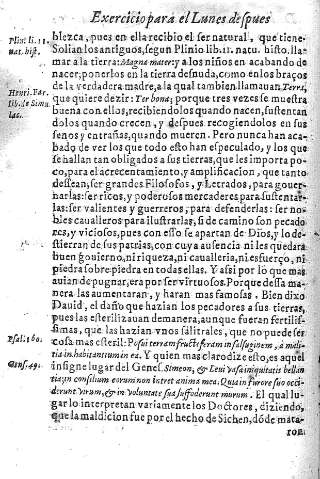 Exercicio para el Lunes despues
blezca, pues en ella recibio el ser natural, que tiene.
Solian los antiguos, segun Plinio lib. 11. natu. histo. lla-
mar a la tierra: Magna mater: y a los niños en acabando de
nacer, ponerlos en la tierra desnuda, como en los braços
de la verdadera madre, a la qual tambien llamauan Terra,
que quiere dezir: Ter bona; porque tres vezes se muestra
buena con ellos, recibiendolos quando nacen, sustentan
dolos quando crecen, y despues recogiendolos en sus
senos y entrañas, quando mueren. Pero nunca han aca-
bado de ver los que todo esto han especulado, y los que
se hallan tan obligados a sus tierras, que les importa po-
co, para el acrecentamiento, y amplificacion, que tanto
dessean, ser grandes Filosofos, y Letrados, para gouer-
narlas: ser ricos, y poderosos mercaderes para sustentar-
las: ser valientes y guerreros, para defenderlas: ser no-
bles caualleros para ilustrarlas, si de camino son pecado
res, y viciosos, pues con esso se apartan de Dios, y lo de-
stierran de sus patrias, con cuya ausencia ni les quedara
buen gouierno, ni riqueza, ni caualleria, ni esfuerço, ni
piedra sobre piedra en todas ellas. Y assi por lo que mas
auian de pugnar, era por ser virtuosos. Porque dessa ma-
nera las aumentaran, y haran mas famosas. Bien dixo
Dauid, el daño que hazian los pecadores a sus tierras,
pues las esterilizauan de manera, que aunque fueran fertilis-
simas, que las hazian vnos salitrales, que no puede ser
cosa mas esteril: Posui terram fructiferam in salsuginem, à mali-
tia inhabitantium in ea. Y quien mas claro dize esto, es aquel
insigne lugar del Genes. Simeon, & Leui vasa iniquitatis bellan
tia: in consilium eorum non intret anima mea. Quia in furore suo occi-
derunt virum, & in voluntate sua suffoderunt murum. El qual lu-
gar lo interpretan variamente los Doctores, diziendo,
que la maldicion fue por el hecho de Sichen, dóde mata-
ron
Plin. li. 11.
nat. hist.
lib. de Simu
lac.
Psal. 160.
Gens. 49.